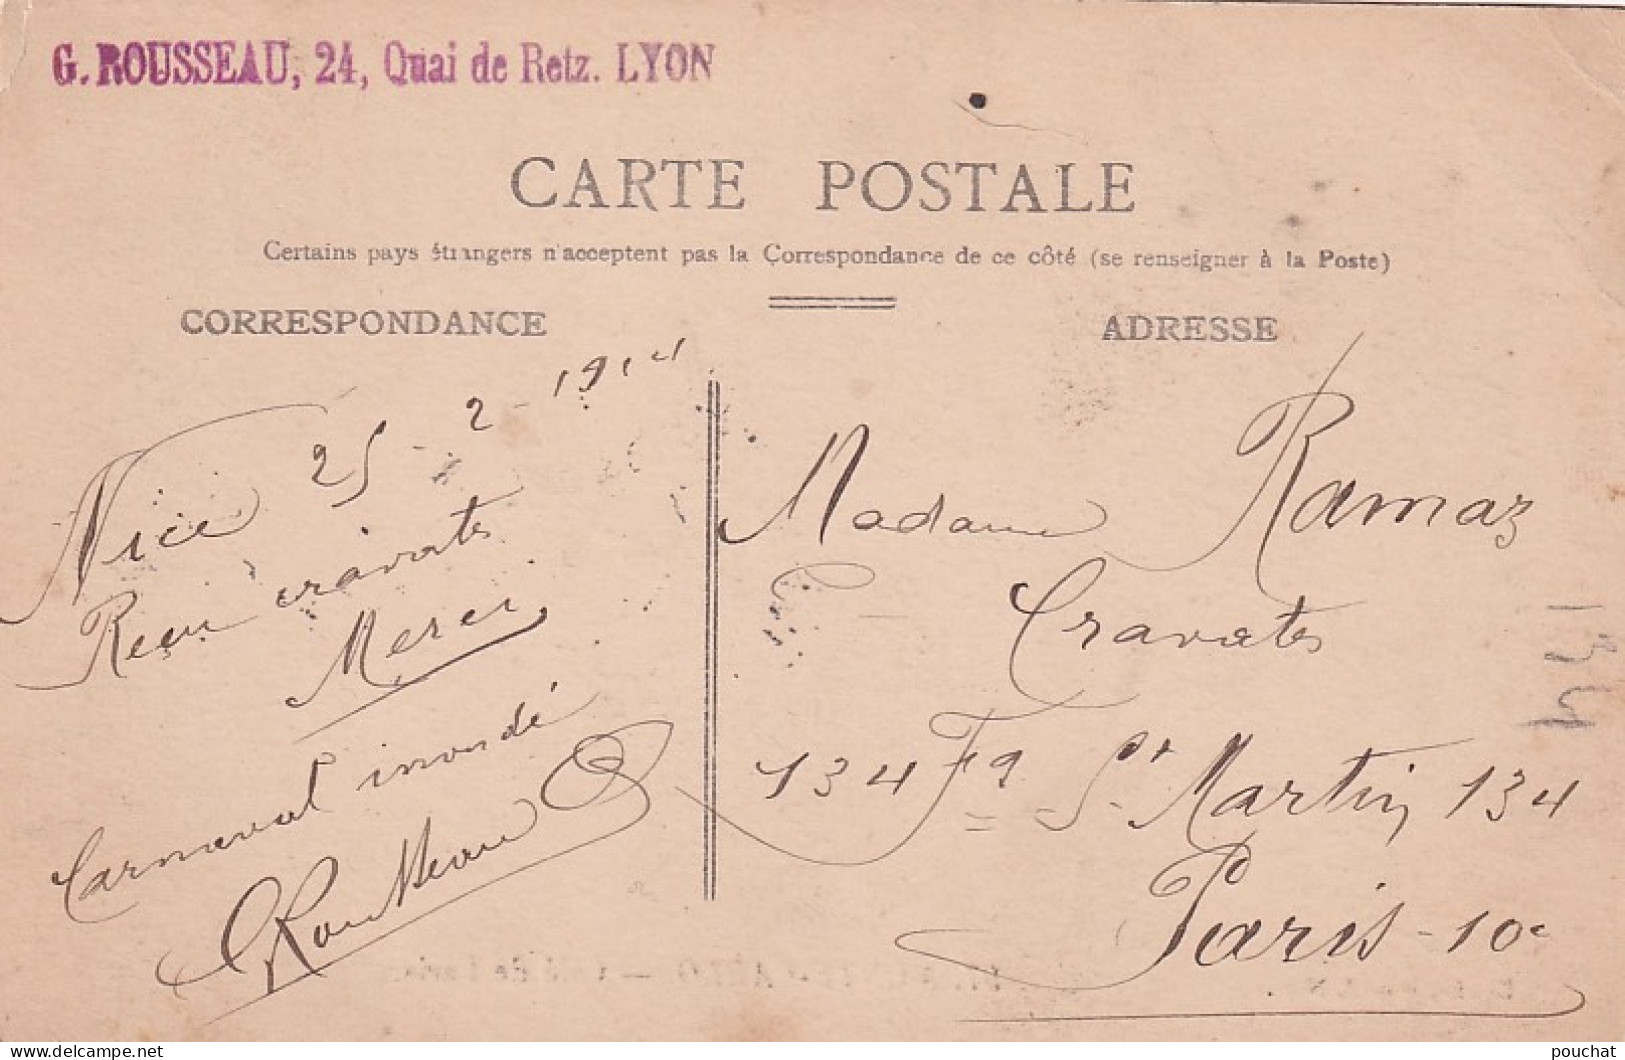 G. ROUSSEAU, 24, Quai de Retz. LYON
CARTE POSTALE
Certains pays étrangers n'acceptent pas la Correspondance de ce côté (se renseigner à la Poste)
CORRESPONDANCE
ADRESSE
Nice 25-2-1914
Reçu cravates
Merci
Carnaval inondé
GRousseau
Madame Ramaz
Cravates
134 Fg St Martin 134
Paris-10e
134
pouchat